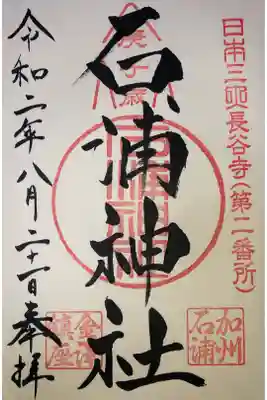 日本三 長谷寺(第二番所)
加州
石浦
庚子歳
石浦神社
令和二年八月二十一日奉拝
金澤
鎮座